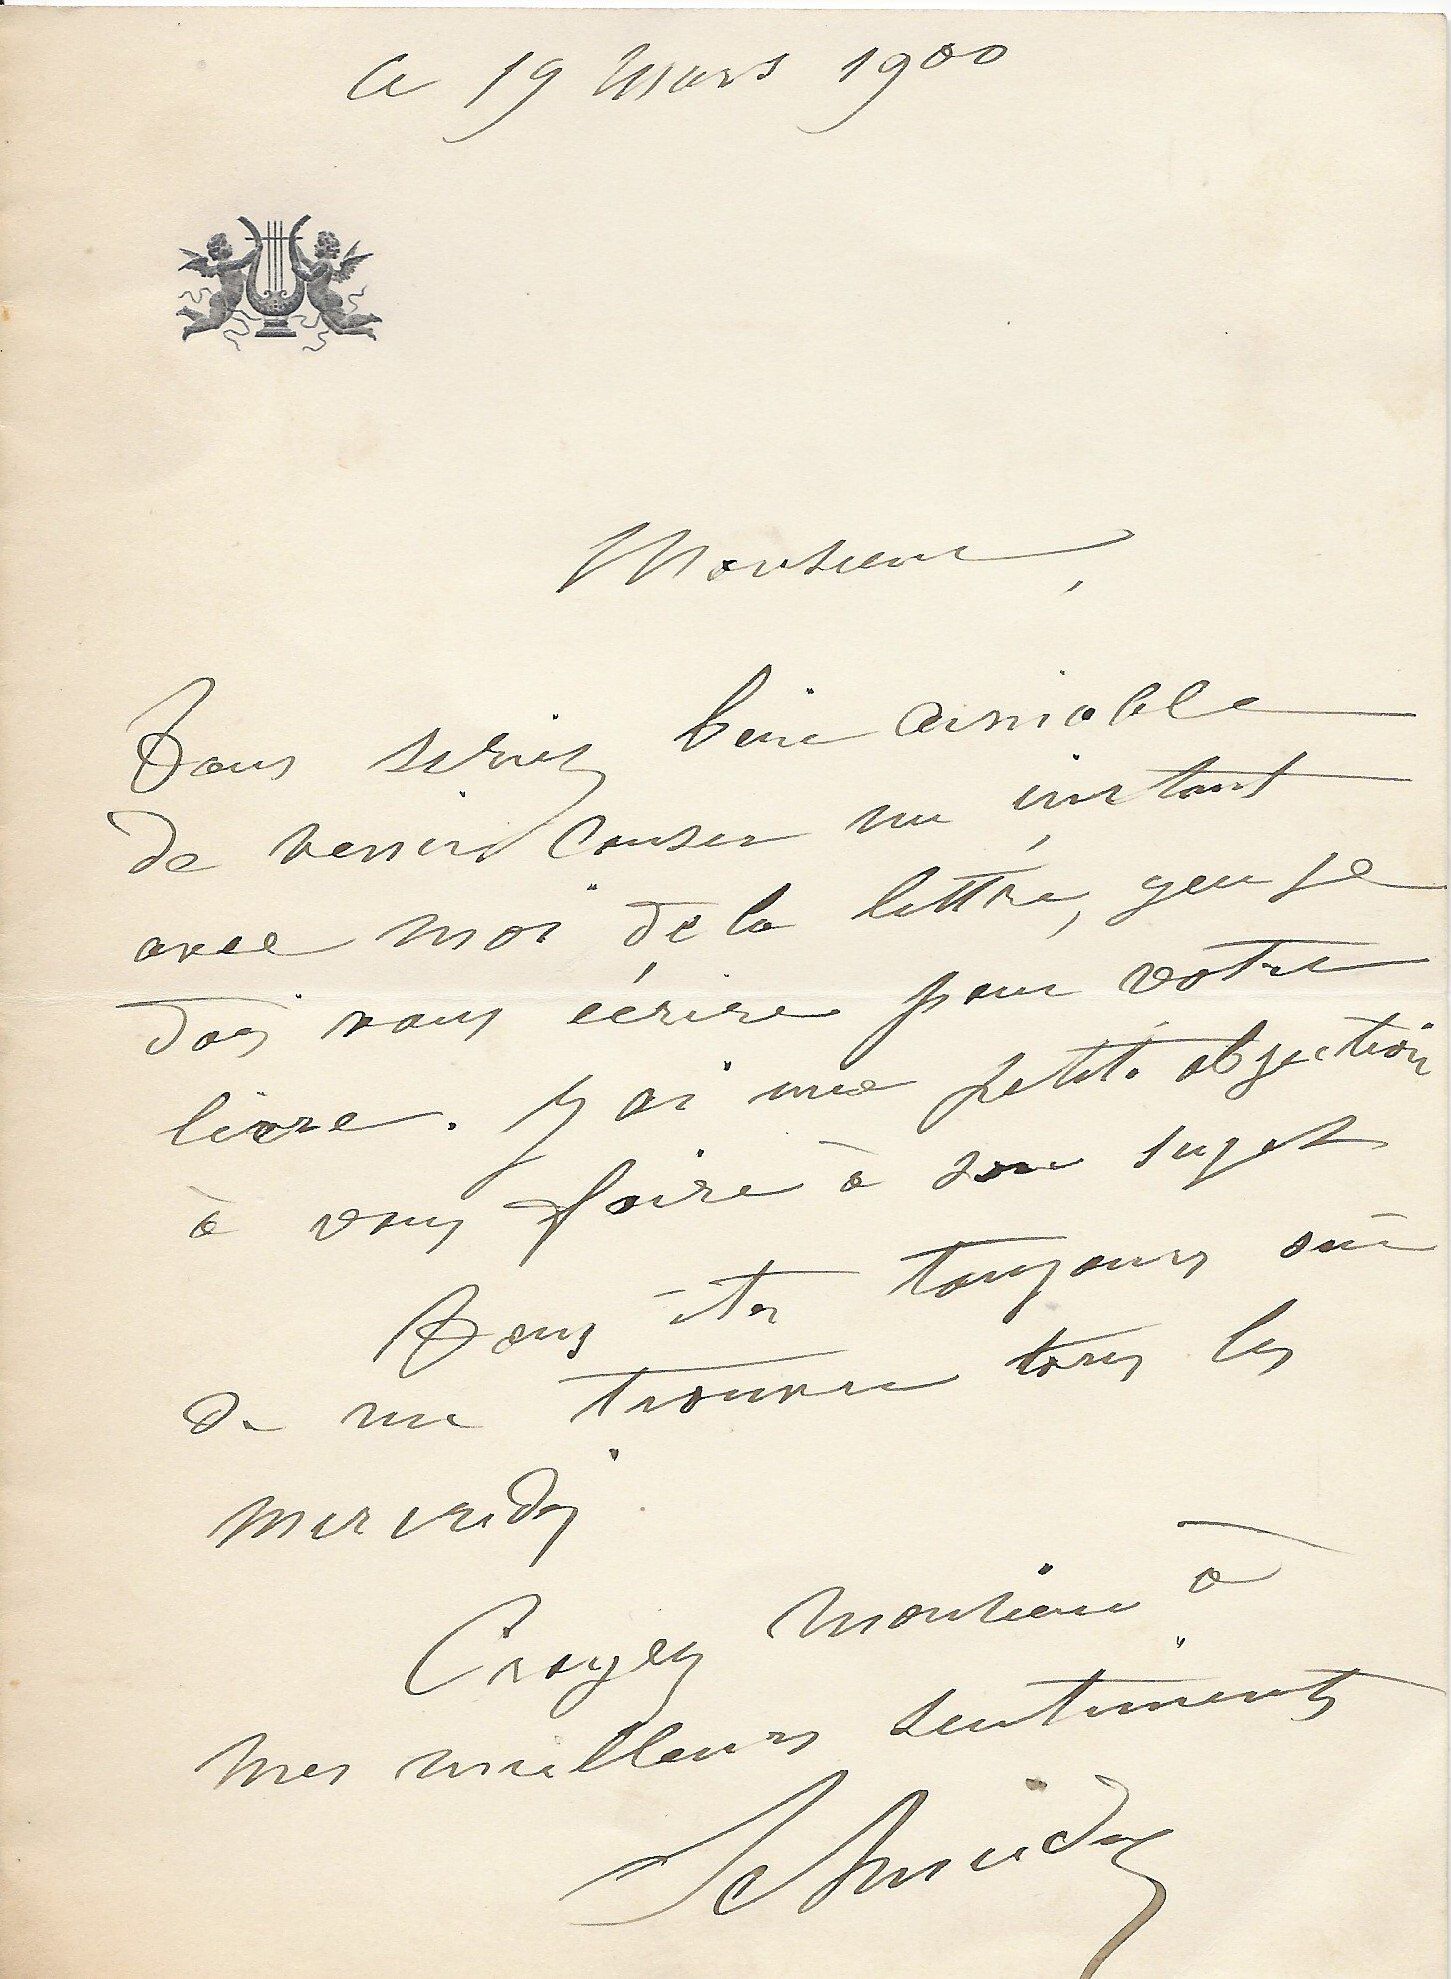 Ce 19 Mars 1900
Monsieur,
Vous seriez bien aimable
de venir causer un instant
avec moi de la lettre, que je
dois vous écrire pour votre
livre. J'ai une petite objection
à vous faire à son sujet
Vous êtes toujours sûr
de me trouver tous les
mercredis
Croyez Monsieur à
mes meilleurs sentiments